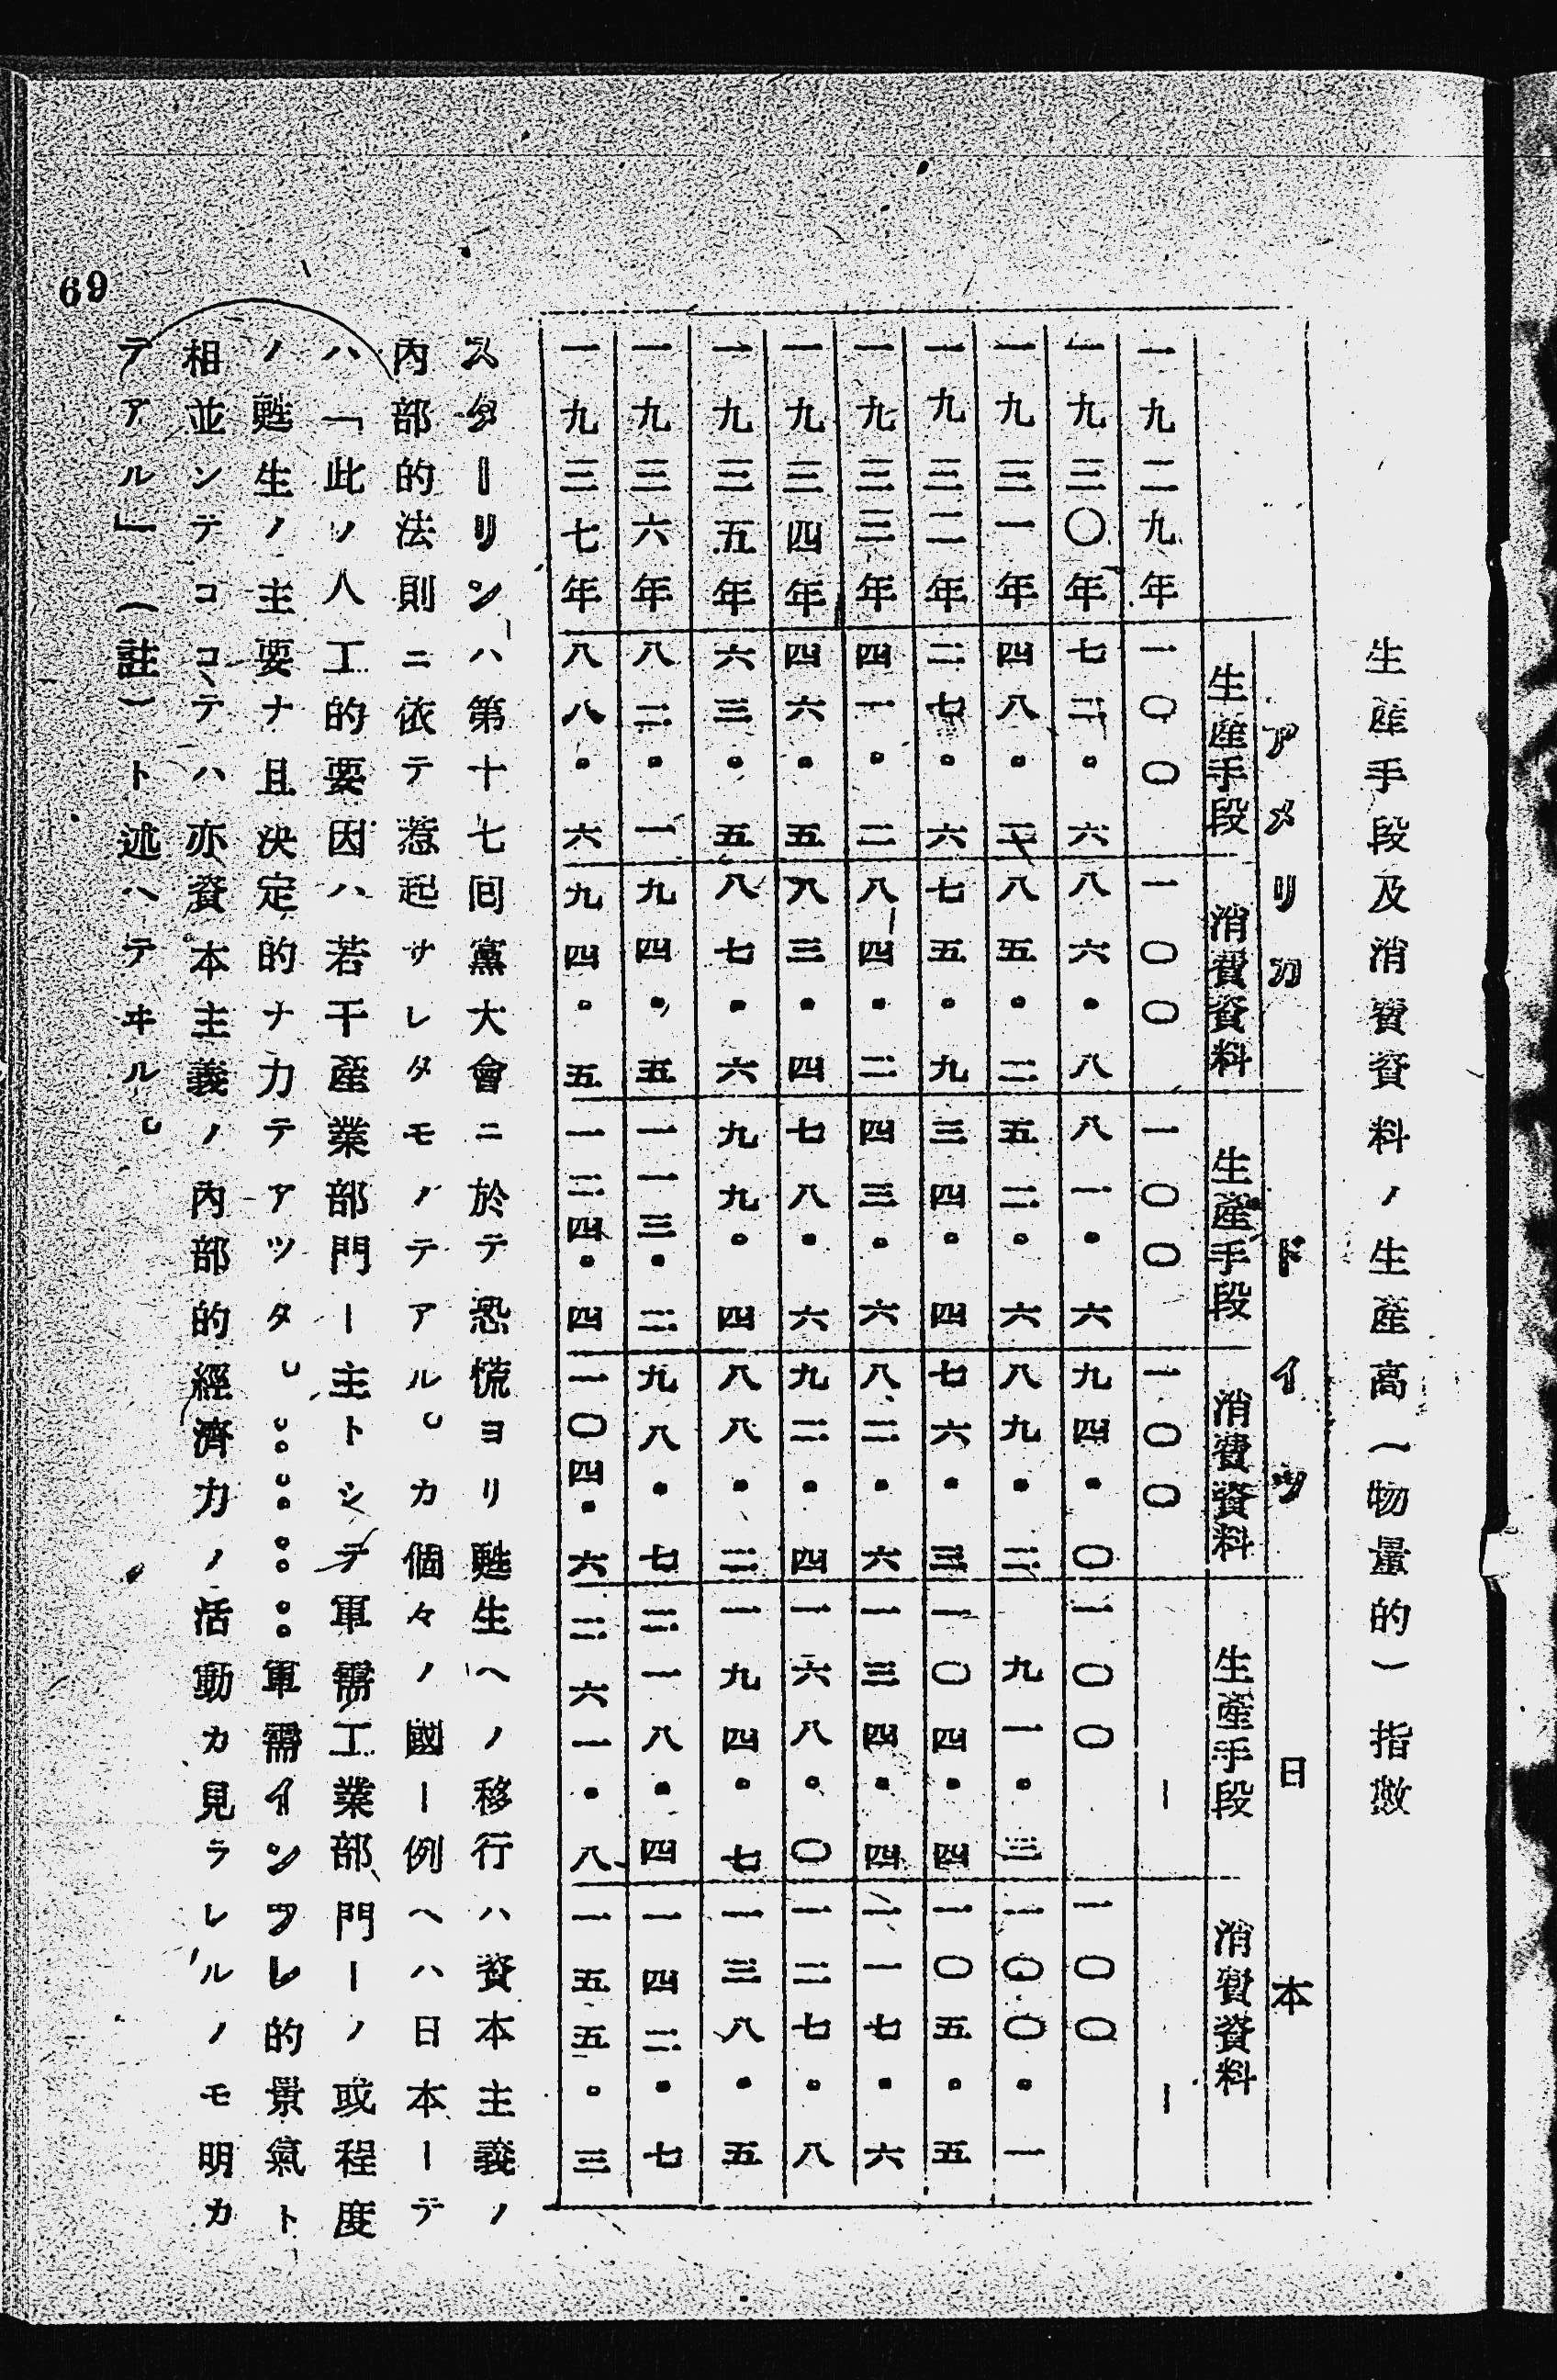 生産手段及消費資料ノ生産高(物量的)指数
アメリカ ドイツ 日本
生産手段 消費資料 生産手段 消費資料 生産手段 消費資料
一九二九年 一〇〇 一〇〇 一〇〇 一〇〇 ー ー
一九三〇年 七二・六 八六・八 八一・六 九四・〇 一〇〇 一〇〇
一九三一年 四八・二 八五・二 五二・六 八九・二 九一・三 一〇〇・一
一九三二年 二七・六 七五・九 三四・四 七六・三 一〇四・四 一〇五・五
一九三三年 四一・二 八四・二 四三・六 八二・六 一三四・四 一一七・六
一九三四年 四六・五 八三・四 七八・六 九二・四 一六八・〇 一二七・八
一九三五年 六三・五 八七・六 九九・四 八八・二 一九四・七 一三八・五
一九三六年 八二・一 九四・五 一一三・二 九八・七 二一八・四 一四二・七
一九三七年 八八・六 九四・五 一二四・四 一〇四・六 二六一・八 一五五・三
スターリンハ第十七回黨大會ニ於テ恐慌ヨリ甦生ヘノ移行ハ資本主義ノ
内部的法則ニ依テ惹起サレタモノテアル。カ個々ノ國ー例ヘハ日本ーデ
ハ「此ノ人工的要因ハ若干産業部門ー主トシテ軍需工業部門ーノ或程度
ノ甦生ノ主要ナ且決定的ナ力テアツタ。。。。。。。。。軍需インフレ的景氣ト
相並ンテコヽテハ亦資本主義ノ内部的經濟力ノ活動カ見ラレルノモ明カ
テアル」(註)ト述ヘテヰル。
69